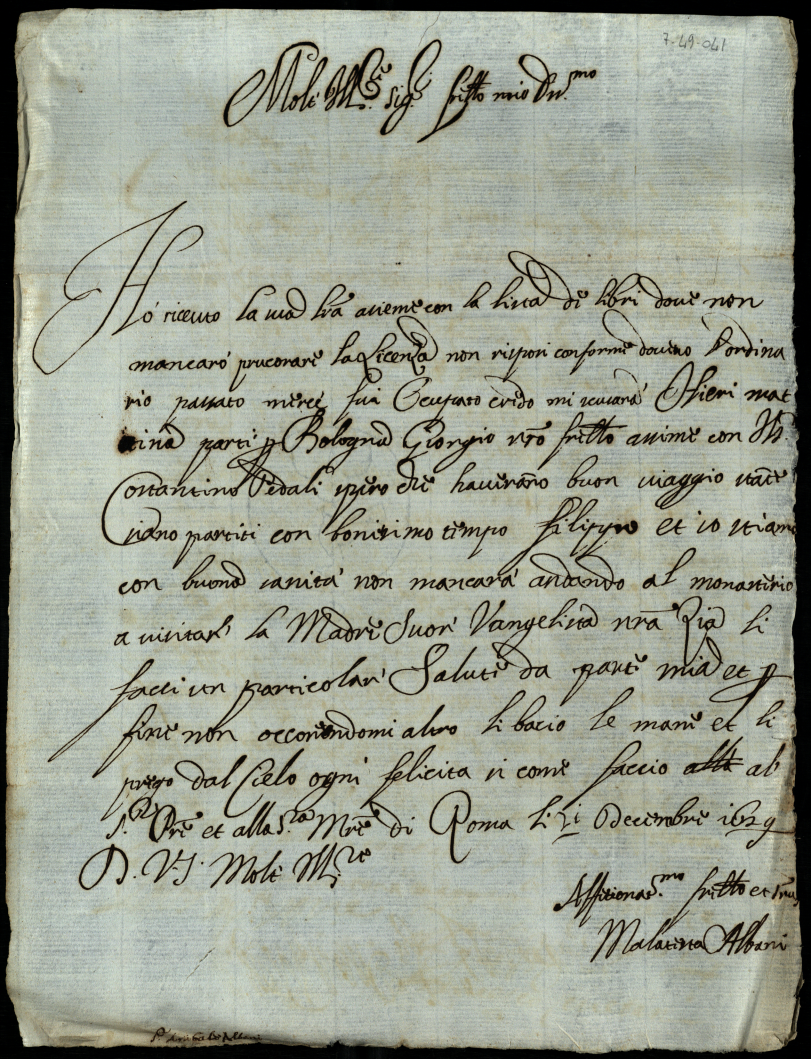 7-49-041
Molt Ill.re Sig.r fr̃llo mio Oss.mo
Hó riceuto la sua lr̃a asieme con la lista de libri dove non
mancaró procorare la Licenza non risposi conforme dovevo l'ordina
rio passato merce fui Occupato credo mi scusara Hieri mat
tina parti p Bologna Giorgio nr̃o fr̃llo assime con Il S.
Costantino Pedali spero che haverañno buon viaggio
siano partiti con bonisimo tempo filippo et io stiamo
con buona sanità non mancarà andando al monasterio
a visitar la Madre Suor Vangelista nr̃a Zia li
facci un particolar Salute da parte mia et p
fine non occorendomi altro li bacio le mane et li
prego dal Cielo ogni felicita si come faccio alli al
S.r Pr̃e et alla S.ra Mr̃e di Roma li Decembre 1629
D. V.S. Molt Ill.re
Affetionat.mo fr̃llo et
Malatesta Albani
S.r Anibale Albani